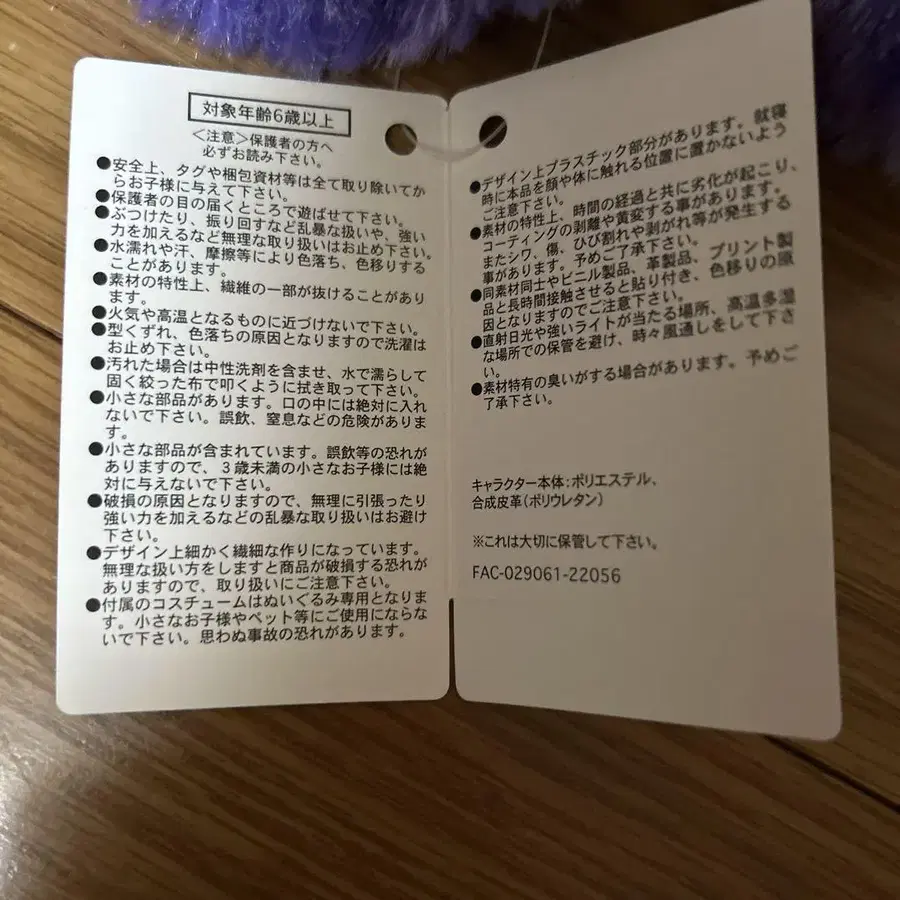 対象年齢6歳以上
＜注意＞保護者の方へ
必ずお読み下さい。
●安全上、タグや梱包資材等は全て取り除いてか
らお子様に与えて下さい。
●保護者の目の届くところで遊ばせて下さい。
●ぶつけたり、振り回すなど乱暴な扱いや、強い
力を加えるなど無理な取り扱いはお止め下さい。
●水濡れや汗、摩擦等により色落ち、色移りする
ことがあります。
●素材の特性上、繊維の一部が抜けることがあり
ます。
●火気や高温となるものに近づけないで下さい。
●型くずれ、色落ちの原因となりますので洗濯は
お止め下さい。
●汚れた場合は中性洗剤を含ませ、水で濡らして
固く絞った布で叩くように拭き取って下さい。
●小さな部品があります。口の中には絶対に入れ
ないで下さい。誤飲、窒息などの危険がありま
す。
●小さな部品が含まれています。誤飲等の恐れが
ありますので、３歳未満の小さなお子様には絶
対に与えないで下さい。
●破損の原因となりますので、無理に引張ったり
強い力を加えるなどの乱暴な取り扱いはお避け
下さい。
●デザイン上細かく繊細な作りになっています。
無理な扱い方をしますと商品が破損する恐れが
ありますので、取り扱いにご注意下さい。
●付属のコスチュームはぬいぐるみ専用となりま
す。小さなお子様やペット等にご使用にならな
いで下さい。思わぬ事故の恐れがあります。
●デザイン上プラスチック部分があります。就寝
時に本品を顔や体に触れる位置に置かないよう
ご注意下さい。
●素材の特性上、時間の経過と共に劣化が起こり、
コーティングの剥離や黄変する事があります。
またシワ、傷、ひび割れや剥がれ等が発生する
事があります。予めご了承下さい。
●同素材同士やビニル製品、革製品、プリント製
品と長時間接触させると貼り付き、色移りの原
因となりますのでご注意下さい。
●直射日光や強いライトが当たる場所、高温多湿
な場所での保管を避け、時々風通しをして下さ
い。
●素材特有の臭いがする場合があります。予めご
了承下さい。
キャラクター本体：ポリエステル、
合成皮革（ポリウレタン）
※これは大切に保管して下さい。
FAC-029061-22056